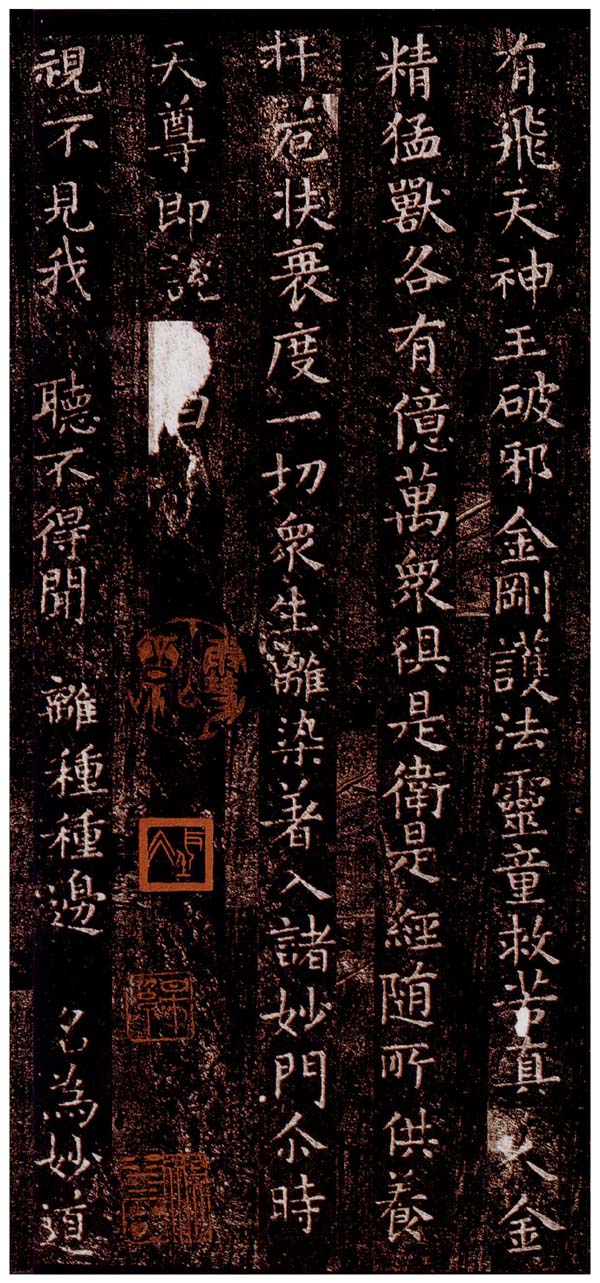 有飛天神王破邪金剛護法靈童救苦真人金
精猛獸各有億萬衆俱是衛是經随所供養
扞厄扶衰度一切衆生離染著入諸妙門尒時
天尊即說 曰
視不見我 聽不得聞 離種種邊 名為妙道